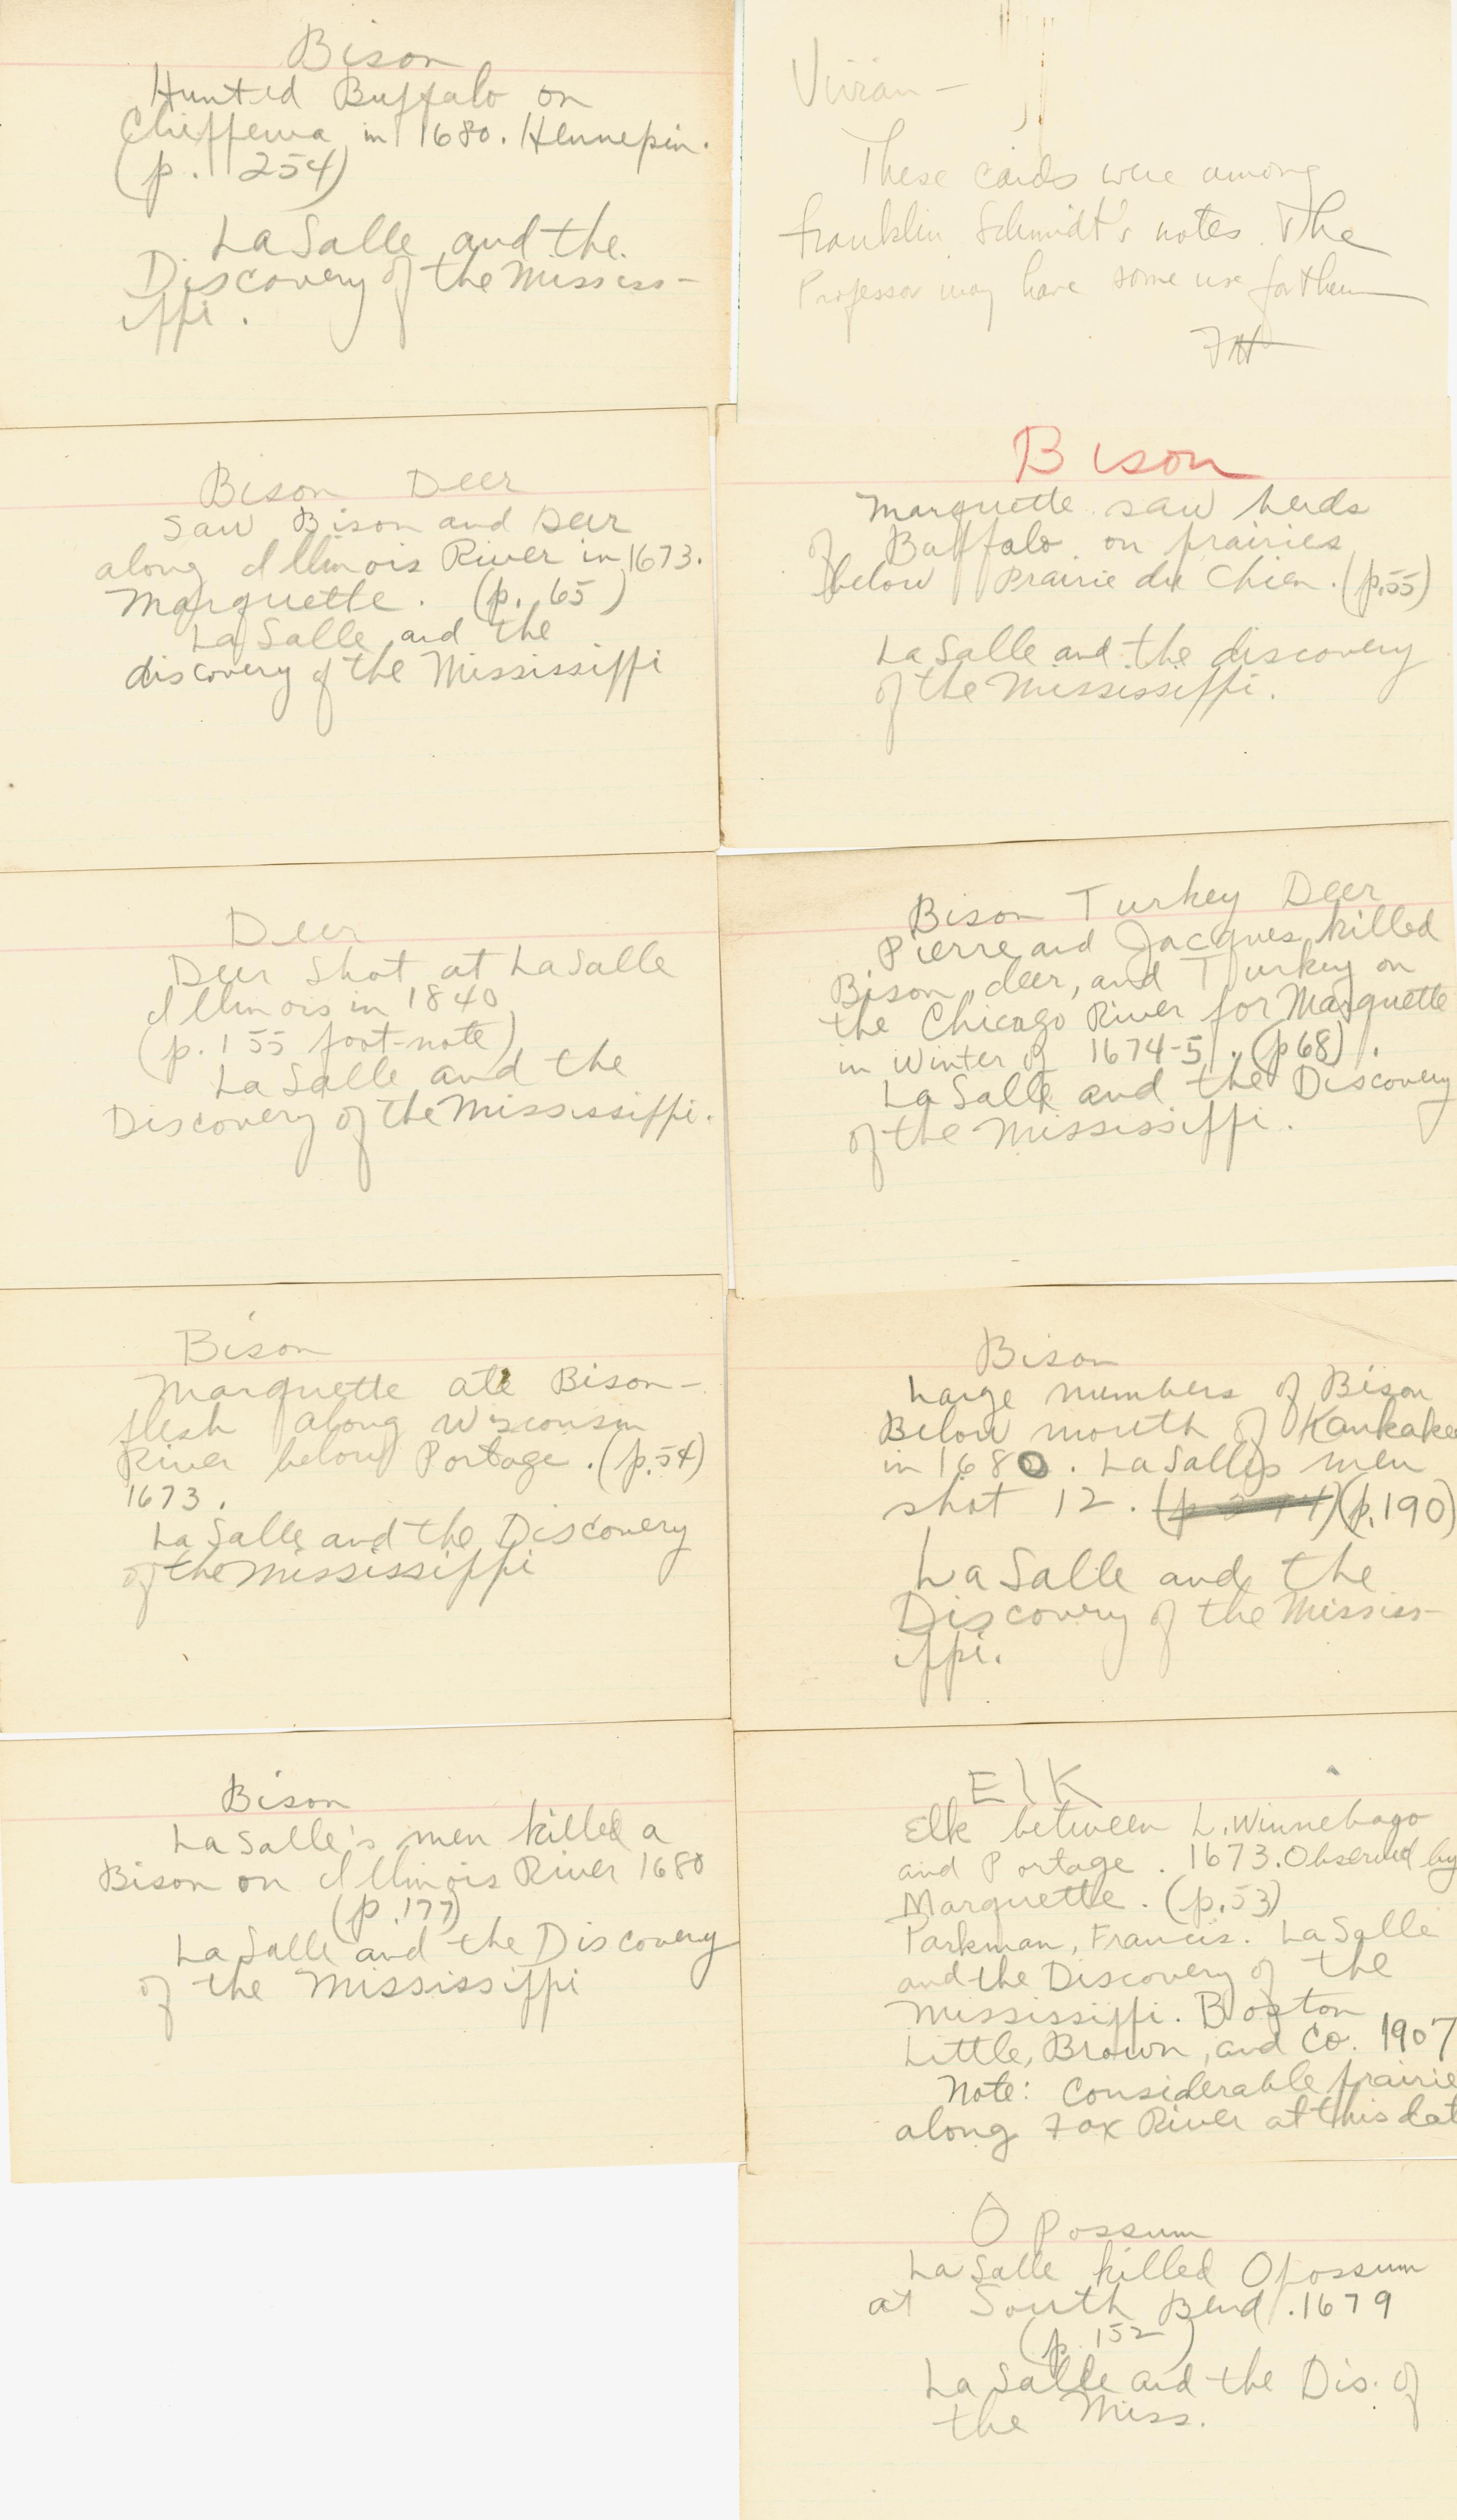 Bison
Hunted Buffalo on
Chippewa in 1680. Hennepin.
(p. 254)
LaSalle and the
Discovery of the Mississ-
ippi.
Vivian –
These cards were among
Franklin Schmidt's notes. The
Professor may have some use for them
FH
Bison Deer
Saw Bison and Deer
along Illinois River in 1673.
Marquette. (p. 65)
LaSalle and the
discovery of the Mississippi
Bison
Marquette saw herds
of Buffalo on prairies
below Prairie du Chien. (p.55)
LaSalle and the discovery
of the Mississippi.
Deer
Deer Shot at LaSalle
Illinois in 1840
(p. 155 foot-note)
LaSalle and the
Discovery of the Mississippi.
Bison Turkey Deer
Pierre and Jacques killed
Bison, deer, and Turkey on
the Chicago River for Marquette
in Winter of 1674-5. (p68).
LaSalle and the Discovery
of the Mississippi.
Bison
Marquette ate Bison-
flesh along Wisconsin
River below Portage. (p.54)
1673.
LaSalle and the Discovery
of the Mississippi
Bison
Large numbers of Bison
Below mouth of Kankakee
in 1680. LaSalle's men
shot 12. (p.190)
LaSalle and the
Discovery of the Mississ-
ippi.
Bison
LaSalle's men killed a
Bison on Illinois River 1680
(p.177)
LaSalle and the Discovery
of the Mississippi
Elk
Elk between L. Winnebago
and Portage. 1673. Observed by
Marquette. (p.53)
Parkman, Francis. LaSalle
and the Discovery of the
Mississippi. Boston
Little, Brown, and Co. 1907
Note: Considerable prairie
along Fox River at this dat
Opossum
LaSalle killed Opossum
at South Bend. 1679
(p. 152)
LaSalle and the Dis. of
the Miss.